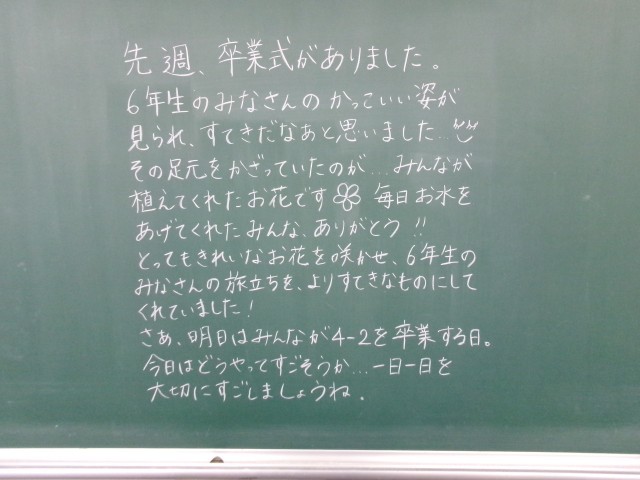 先週、卒業式がありました。
6年生のみなさんのかっこいい姿が
見られ、すてきだなあと思いました…
その足元をかざっていたのが…みんなが
植えてくれたお花です 毎日お水を
あげてくれたみんな、ありがとう!!
とってもきれいなお花を咲かせ、6年生の
みなさんの旅立ちを、よりすてきなものにして
くれていました!
さあ、明日はみんなが4-2を卒業する日。
今日はどうやってすごそうか…一日一日を
大切にすごしましょうね。